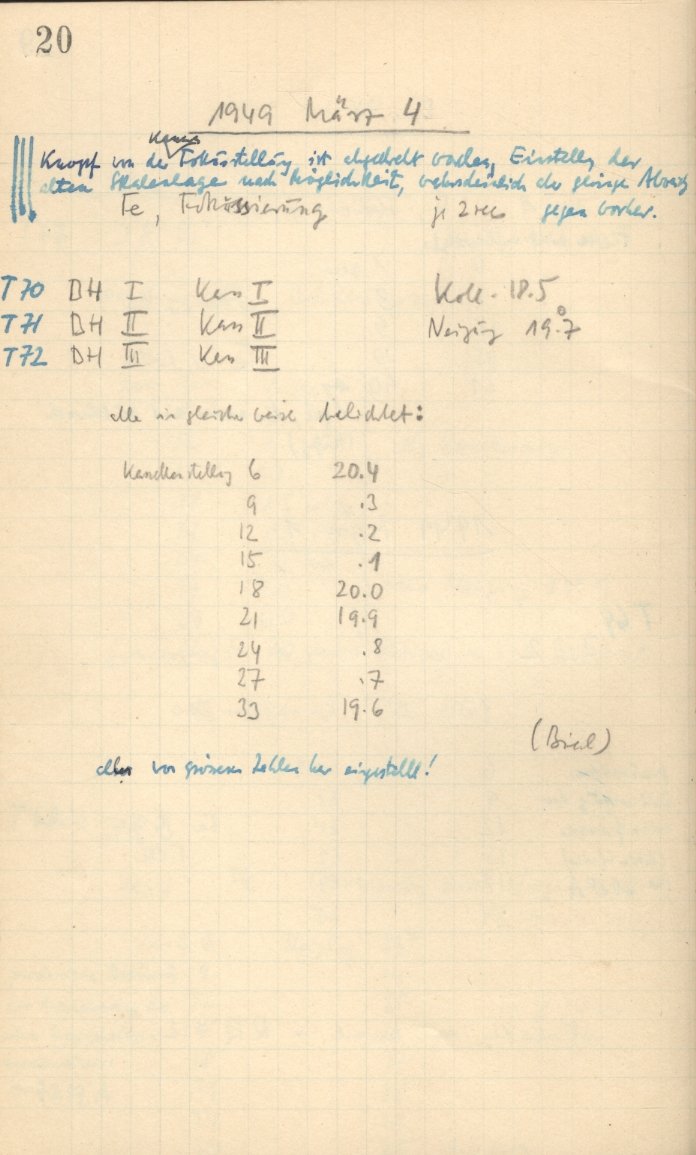 20
1949 März 4
Kam
Knopf von der Fokusstellung ist abgedreht worden, Einstellg der
alten Skalenlage nach Möglichkeit, wahrscheinlich aber geringe Abweich
Fe, Fokussierung je 2 sec gegen vorher.
T70 BH I Kass I Koll. 18.5
T71 BH II Kass II Neigung 19.°7
T72 BH III Kass III
alle in gleicher Weise belichtet:
6 20.4
9 .3
12 .2
15 .1
18 20.0
21 19.9
24 .8
27 .7
33 19.6
alles von grösseren Zahlen her eingestellt!